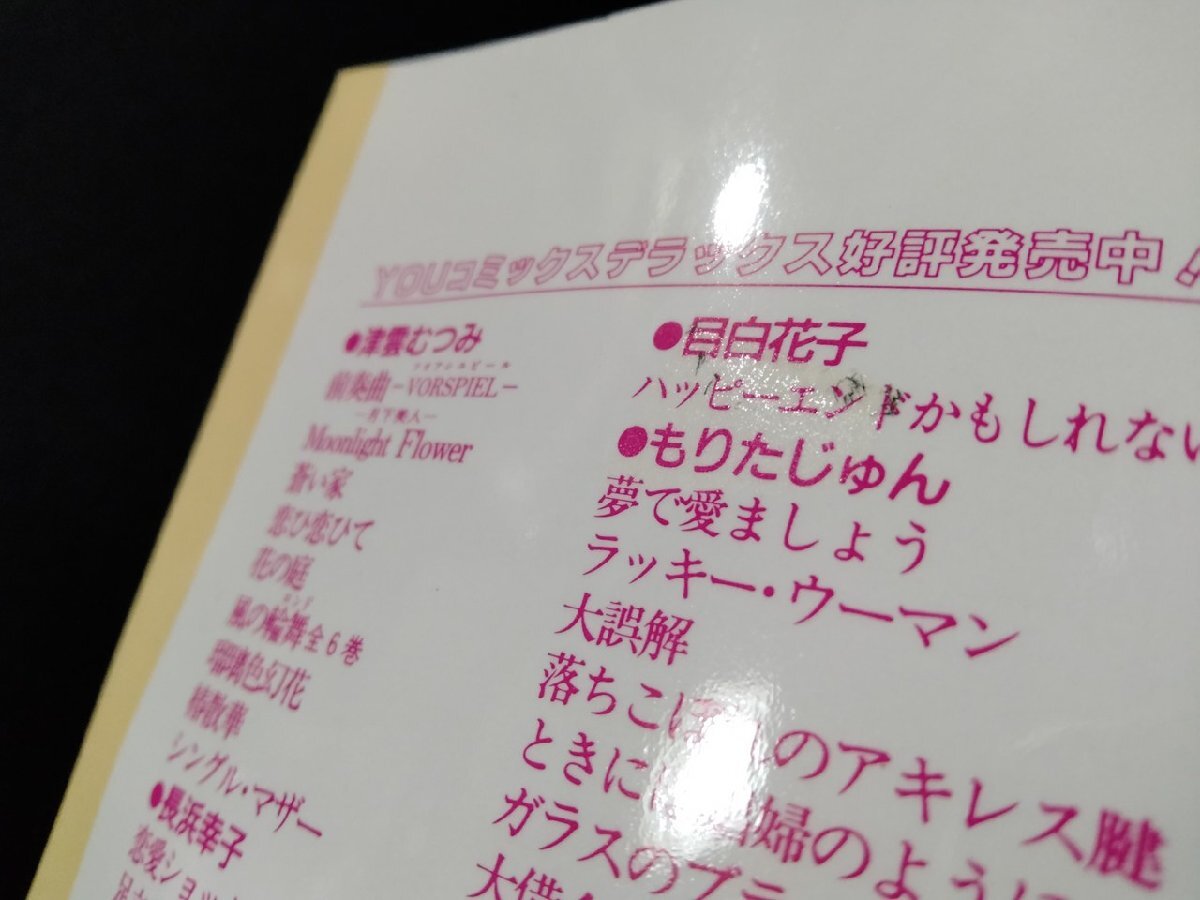 YOUコミックスデラックス好評発売中!
●津雲むつみ
前奏曲-VORSPIEL-
フォアシュピール
Moonlight Flower
―月下美人―
蒼い家
恋ひ恋ひて
花の庭
風の輪舞全6巻
ロンド
瑠璃色幻花
椿散華
シングル・マザー
●長浜幸子
恋愛ショッ
●目白花子
ハッピーエンドかもしれない
●もりたじゅん
夢で愛ましょう
ラッキー・ウーマン
大誤解
落ちこぼ のアキレス腱
ときに 婦のように
ガラスのプラ
大借